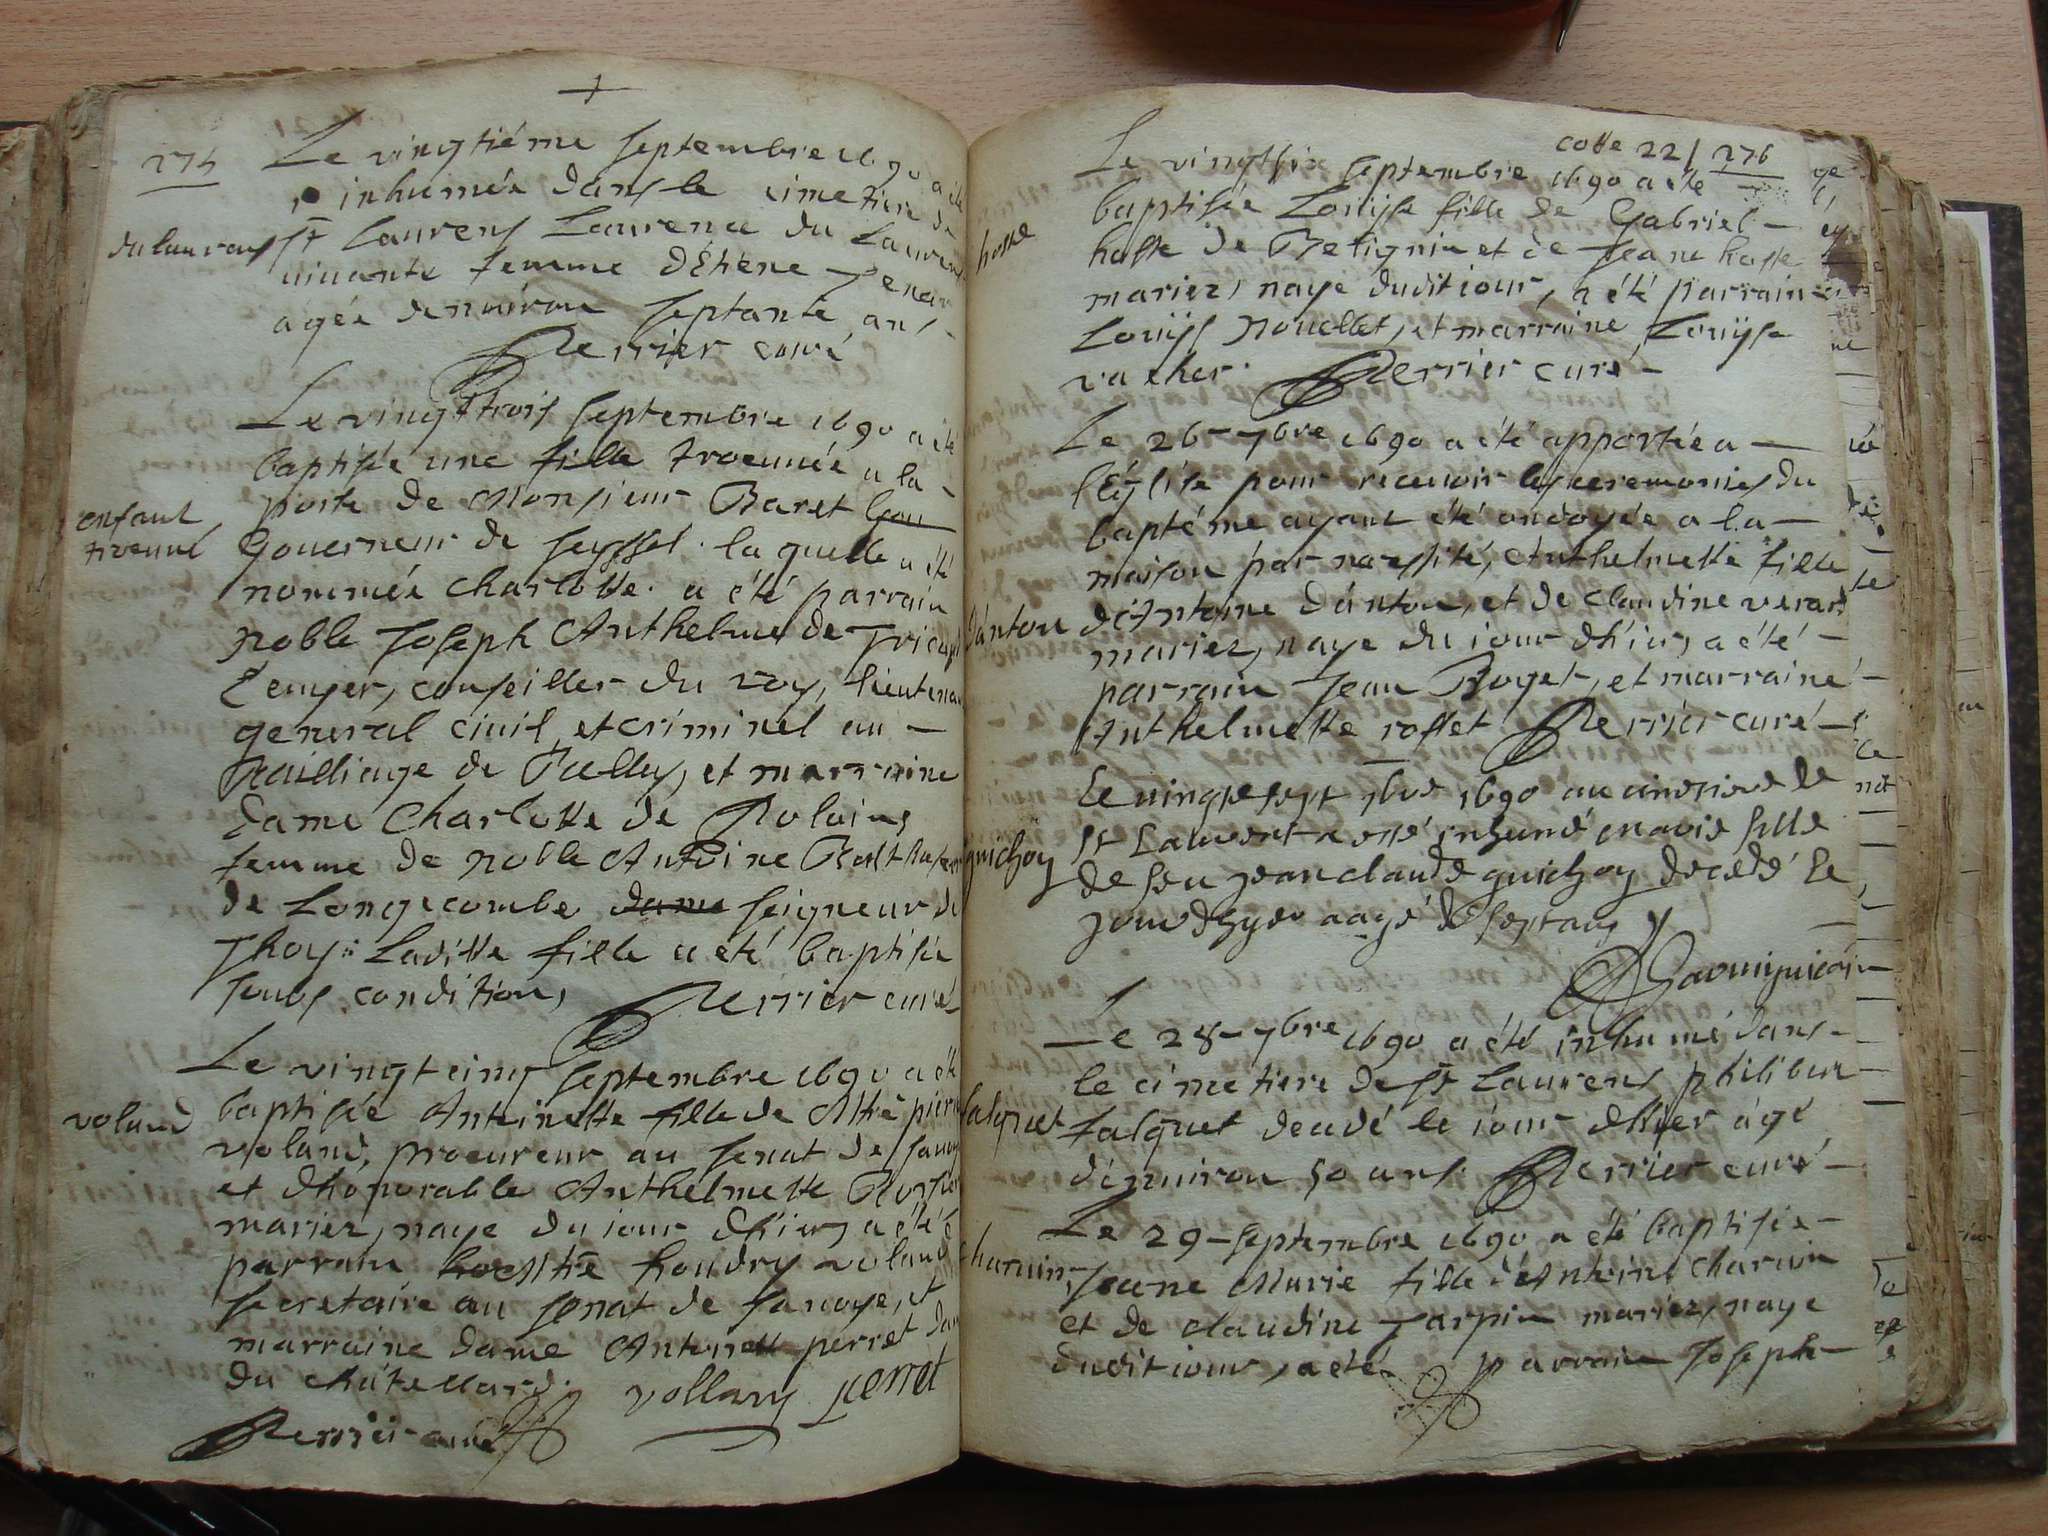 275
Le vingtiéme septembre 1690 a été
inhumée dans le cimetiere de
du laurens
St Laurens Laurence du Laurens
vivante femme d'Etiene
agée denuiron septante ans
Perrier curé
Le vingttrois septembre 1690 a été
baptisée une fille troeuuée a la
enfant
troeuué
porte de Monsieur Baret
Gouuerneur de seyssel. laquelle a été
nommée charlotte. a été parrain
noble Joseph Anthelme de
conseiller du roy, lieutenant
general civil et criminel au
Bailliage de Belley, et marraine
dame Charlotte de
femme de noble Antoine
de Longecombe dame seigneur de
Thoy. Laditte fille a été baptisée
soubs condition,
Perrier curé
Le vingtcinq septembre 1690 a été
voland
baptisée Antoinette fille de Mtre pierre
voland, procureur au senat de sauoye
et d'honorable Anthelmette
mariez, naye du iour d'hier, a été
parrain Mtre voland
secretaire au senat de sauoye, et
marraine dame Antoinette perret
du châtellard. vollany perret
Perrier curé
cotte 22 / 276
Le vingtsix septembre 1690 a été
baptisée Louyse fille de Gabriel
hosse
hosse de et de Jeane hosse
mariez, naye duditiour, a été parrain
Louys Nouellet, et marraine Louyse
vacher. Perrier curé
Le 26 - 7bre 1690 a été apportée a
l'Eglise pour receuoir les ceremonies du
baptéme ayant été ondoyée a la
maison par necessité, Anthelmette fille
danton
d'Antoine danton, et de claudine
mariez, naye du iour d'hier, a été
parrain Jean Royet, et marraine
Anthelmette rosset Perrier curé
Le uingt sept 7bre 1690 au cimetiere de
guichoy
St Laurent a esté inhumé marie fille
de feu Jean claude guichoy decedé le
jour dhyer aagé de sept ans
Le 28 - 7bre 1690 a été inhumé dans
le cimetiere de St Laurens philibert
falquet
falquet decedé le iour d'hier agé
d'enuiron 50 ans Perrier curé
Le 29 - septembre 1690 a été baptisée
charuin
Jeane Marie fille d'Antoine charuin
et de claudine mariez, naye
duditiour, a été parrain Joseph